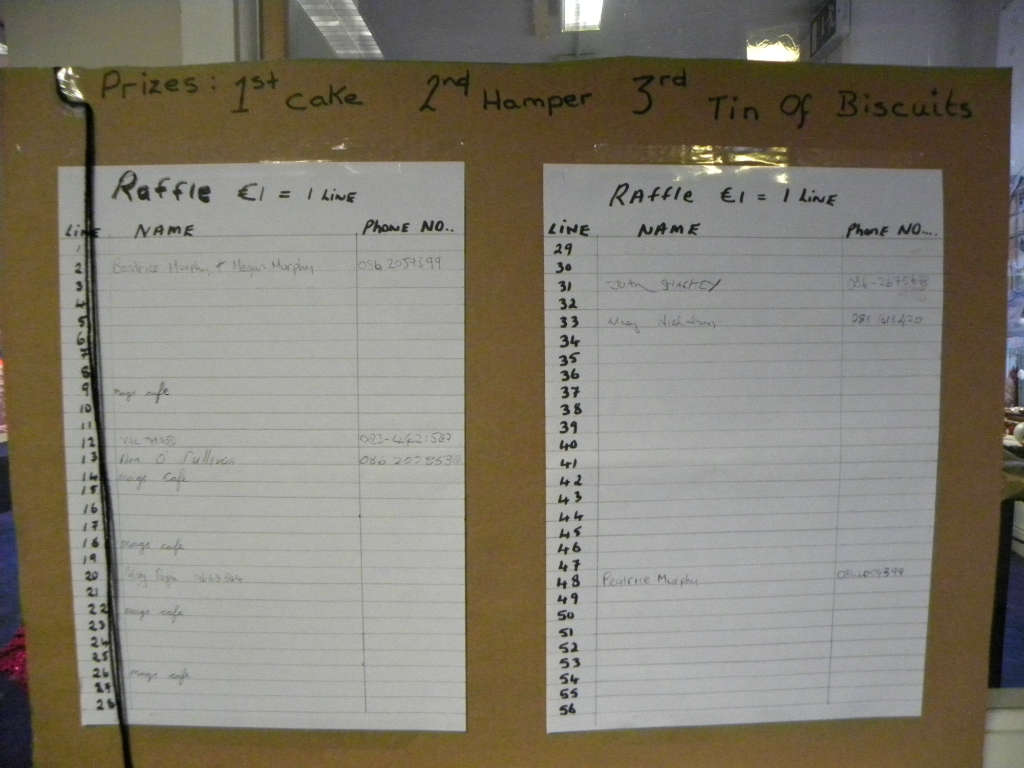 Prizes: 1st Cake 2nd Hamper 3rd Tin Of Biscuits
Raffle €1 = 1 LINE
LINE NAME PHONE NO..
1
2 Beatrice Murphy + Megan Murphy
3
4
5
6
7
8
9 mags cafe
10
11
12
13 O Sullivan
14 mags cafe
15
16
17
18 mags cafe
19
20
21
22 mags cafe
23
24
25
26 mags cafe
27
28
RAffle €1 = 1 LINE
LINE NAME PHONE NO....
29
30
31
32
33
34
35
36
37
38
39
40
41
42
43
44
45
46
47
48 Beatrice Murphy
49
50
51
52
53
54
55
56